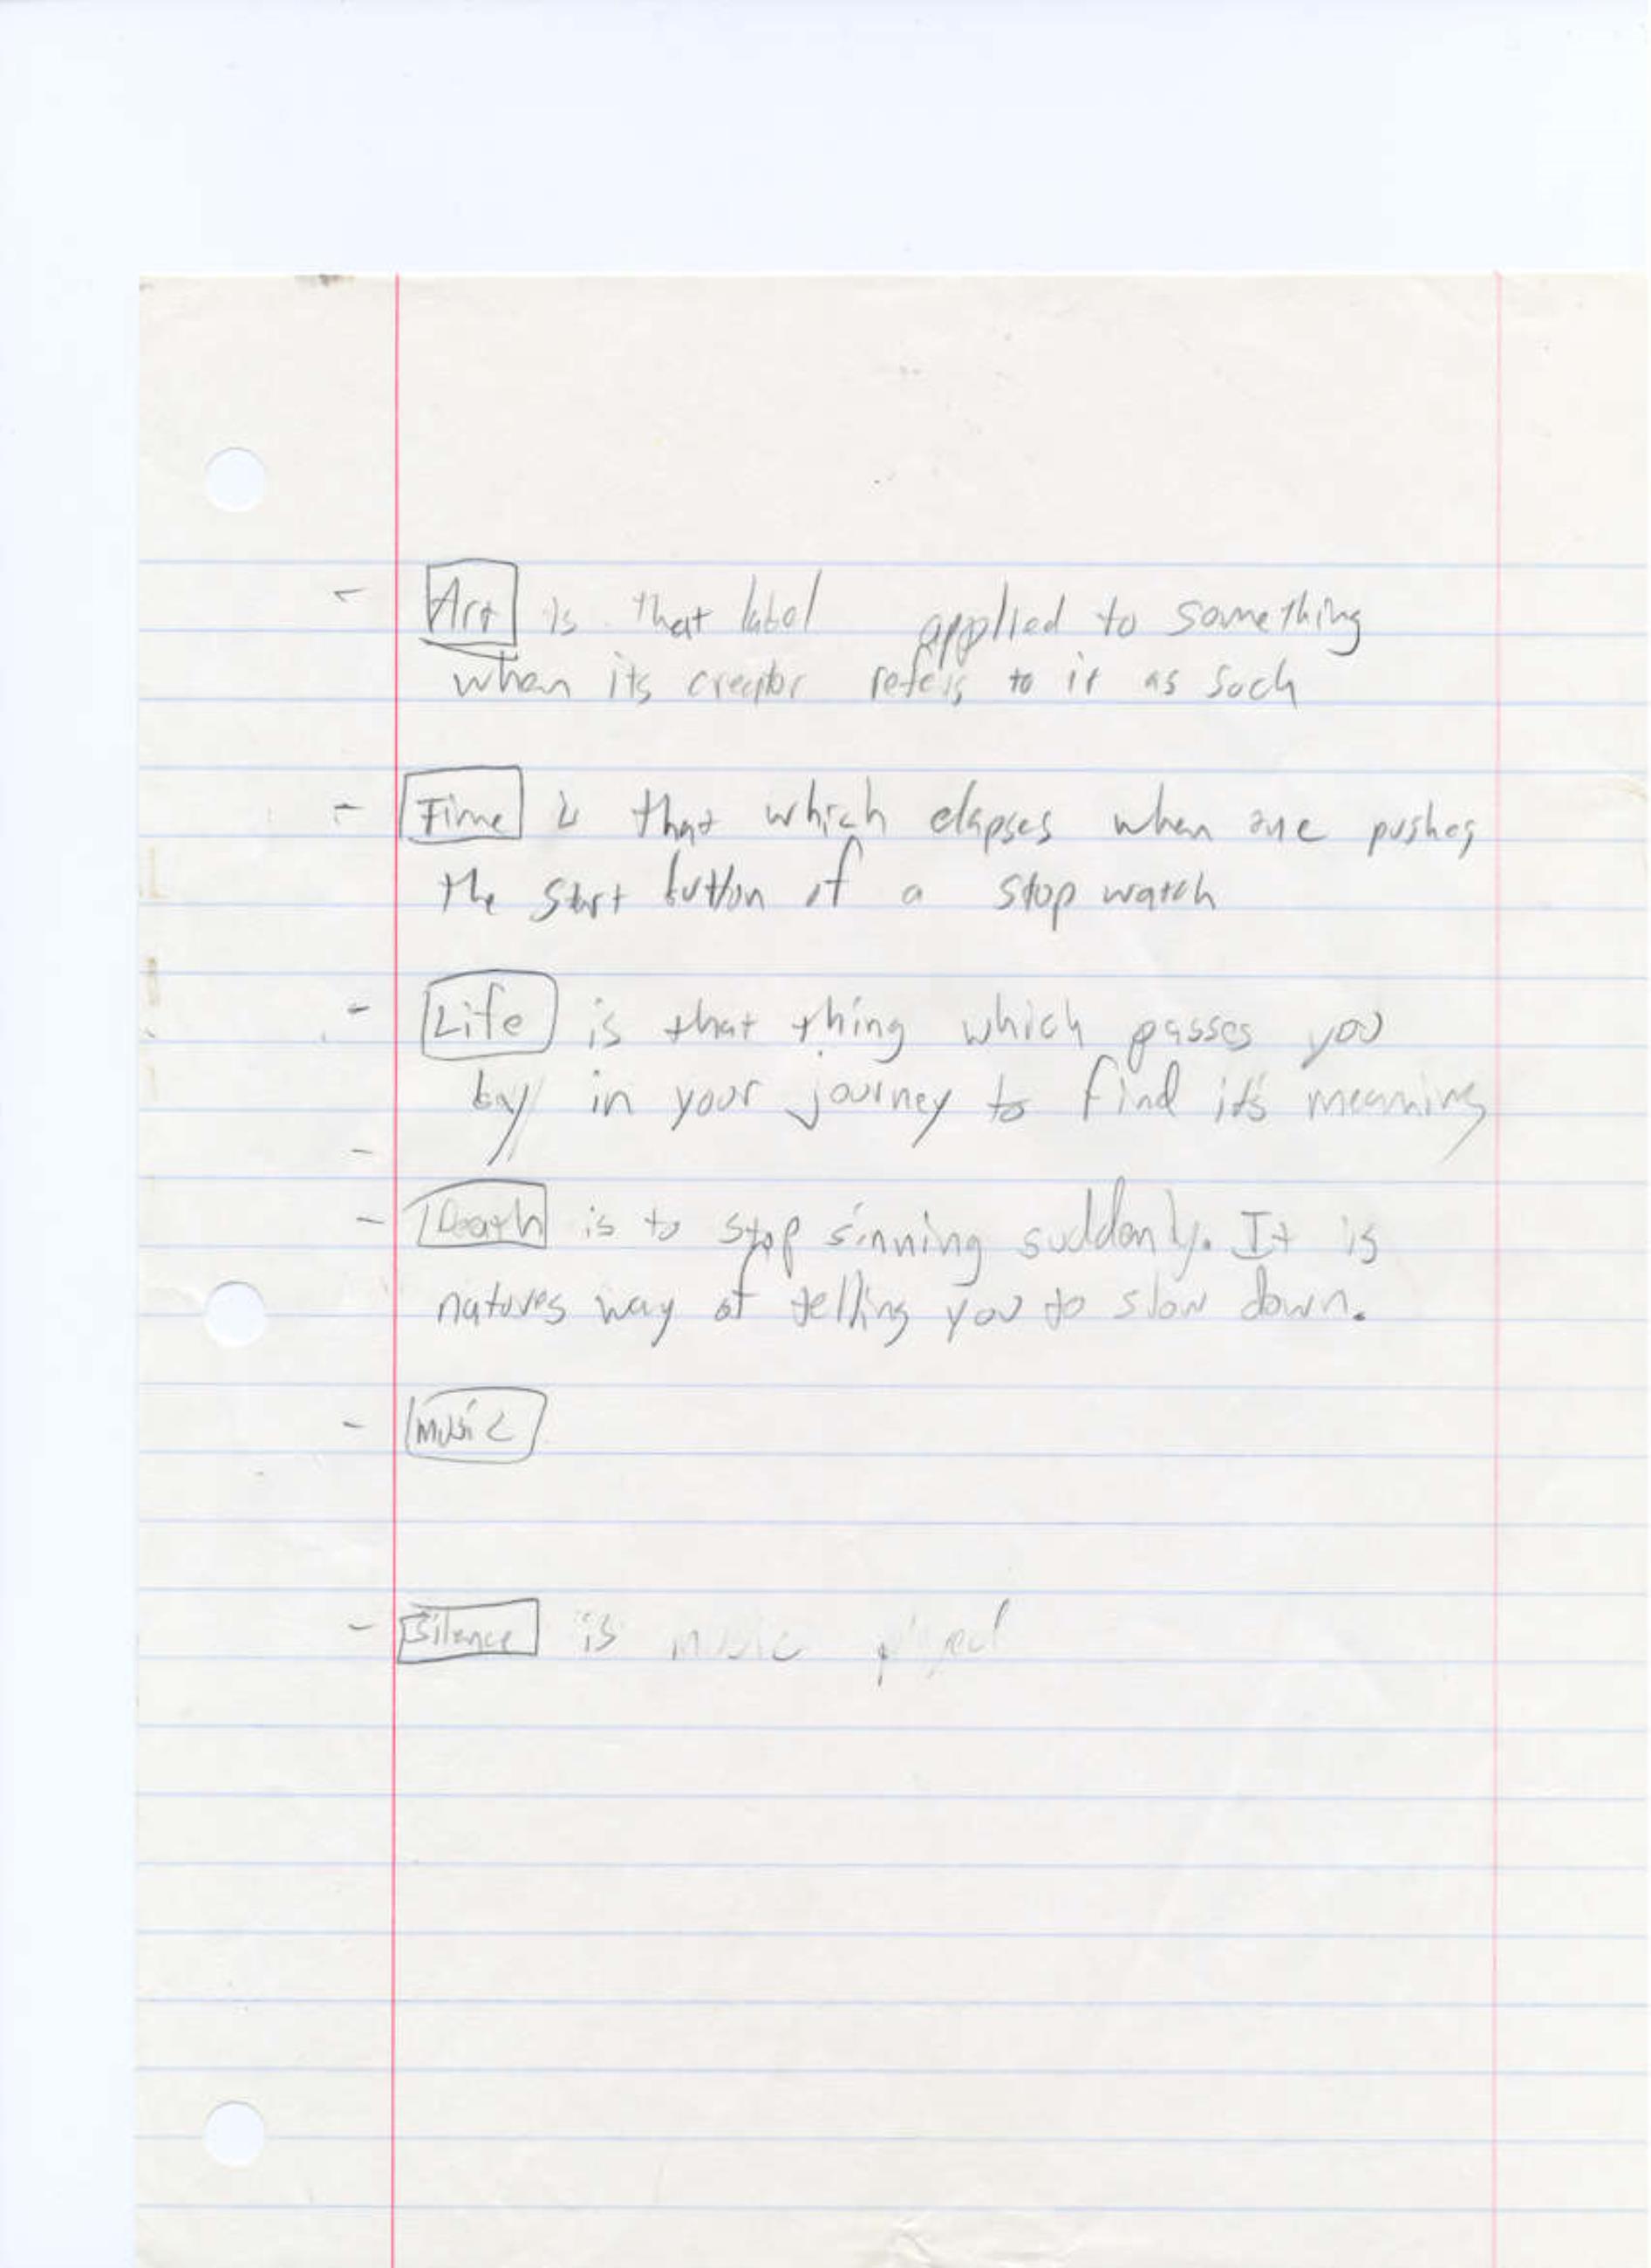 - Art is that label applied to something
when its creator refers to it as such
- Time is that which elapses when one pushes
the start button of a stop watch
- Life is that thing which passes you
by in your journey to find it's meaning
-
- Death is to stop sinning suddenly. It is
natures way of telling you to slow down.
- Music
- Silence is music